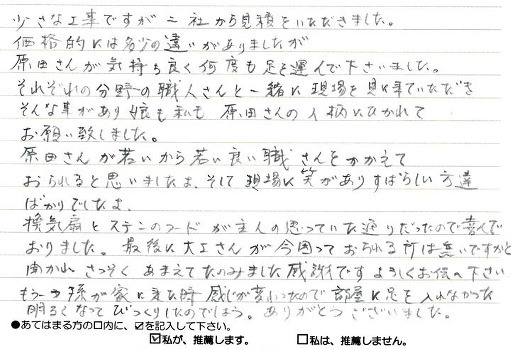 少さな工事ですが二社から見積をいただきました。
価格的には多少の違いがありましたが
原田さんが気持ち良く何度も足を運んで下さいました。
それぞれの分野の職人さんと一緒に現場を見に来ていただき
そんな事があり娘も私も原田さんの人柄にひかれて
お願い致しました。
原田さんが若いから若い良い職人さんをかかえて
おられると思いましたよ、そして現場に笑がありすばらしい方達
ばかりでしたよ。
換気扇とステンのフードが主人の思っていた通りだったので喜んで
おりました。最後に大工さんが今困っておられる所は無いですかと
聞かれ さっそく あまえてたのみました 感謝です よろしくお伝へ下さい
もう一つ孫が家に来た時 感じが変わったので部屋に足を入れなかった
明るくなってびっくりしたのでしょう。ありがとうございました。
●あてはまる方の口内に、☑を記入して下さい。
☑私が、推薦します。 □私は、推薦しません。